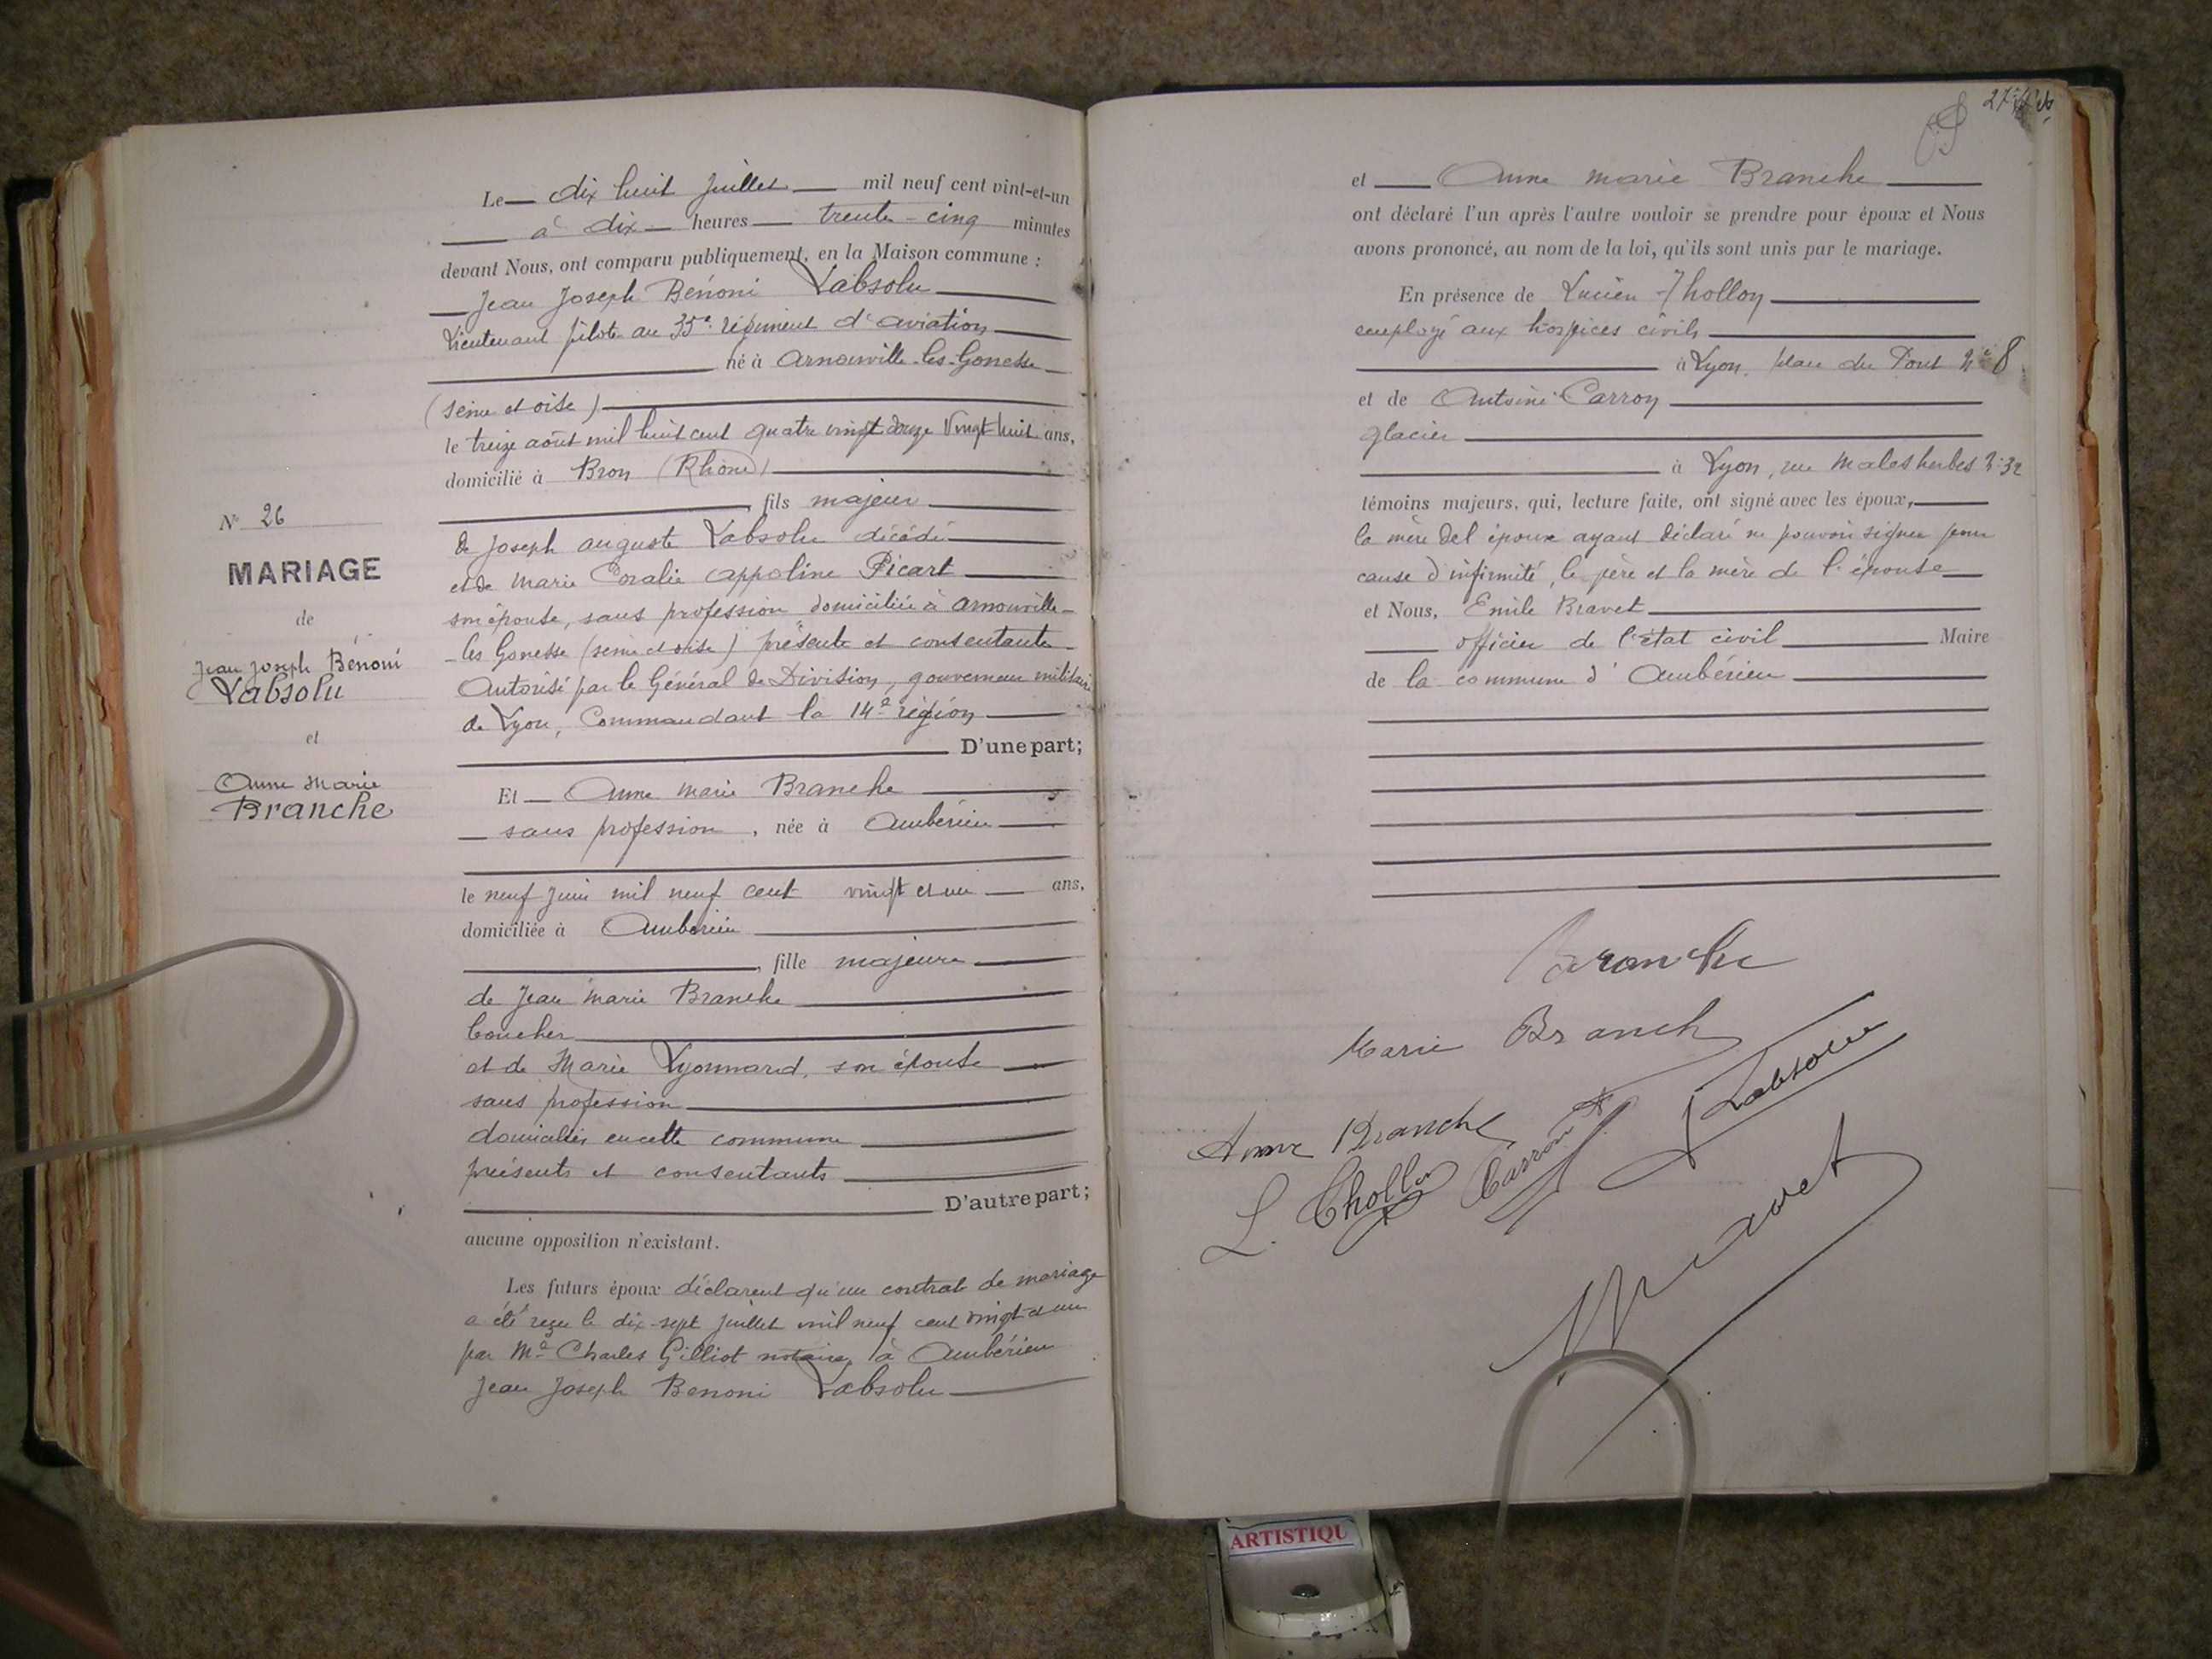 Le dix huit Juillet mil neuf cent vint-et-un
à dix heures trente-cinq minutes
devant Nous, ont comparu publiquement, en la Maison commune :
Jean Joseph Bénoni Labsolu
Lieutenant pilote au 35e régiment d'aviation
né à Arnouville-les-Gonesse
(Seine et oise)
le treize août mil huit cent quatre vingt douze Vingt huit ans,
domicilié à Bron (Rhône)
, fils majeur
N° 26
MARIAGE
de
Jean Joseph Bénoni
Labsolu
et
Anne Marie
Branche
de Joseph auguste Labsolu décédé
et de Marie Coralie Appoline Picart
son épouse, sans profession domiciliée à Arnouville-
les Gonesse (seine et oise) présente et consentante
Autorisé par le Général de Division, gouverneur militaire
de Lyon, Commandant la 14e région
D'une part;
Et Anne marie Branche
sans profession, née à Ambérieu
le neuf Juin mil neuf cent vingt et un ans,
domiciliée à Ambérieu
, fille majeure
de Jean Marie Branche
boucher
et de Marie Lyonnard, son épouse
sans profession
domiciliés en cette commune
présents et consentants
D'autre part;
aucune opposition n'existant.
Les futurs époux déclarent qu'un contrat de mariage
a été reçu le dix-sept Juillet mil neuf cent vingt et un
par Me Charles Gilliot notaire, à Ambérieu
Jean Joseph Benoni Labsolu
et Anne marie Branche
ont déclaré l'un après l'autre vouloir se prendre pour époux et Nous
avons prononcé, au nom de la loi, qu'ils sont unis par le mariage.
En présence de Lucien Thollon
employé aux hospices civils
à Lyon, place du Pont N° 8
et de Antoine Carron
glacier
à Lyon, rue Malesherbes N° 32
témoins majeurs, qui, lecture faite, ont signé avec les époux,
la mère de l'époux ayant déclaré ne pouvoir signer pour
cause d'infirmité, le père et la mère de l'épouse
et Nous, Emile Bravet
officier de l'état civil Maire
de la commune d'Ambérieu
Branche
Marie Branch
Labsolu
Anne Branche
L. Thollon
Carron
Bravet
ARTISTIQU